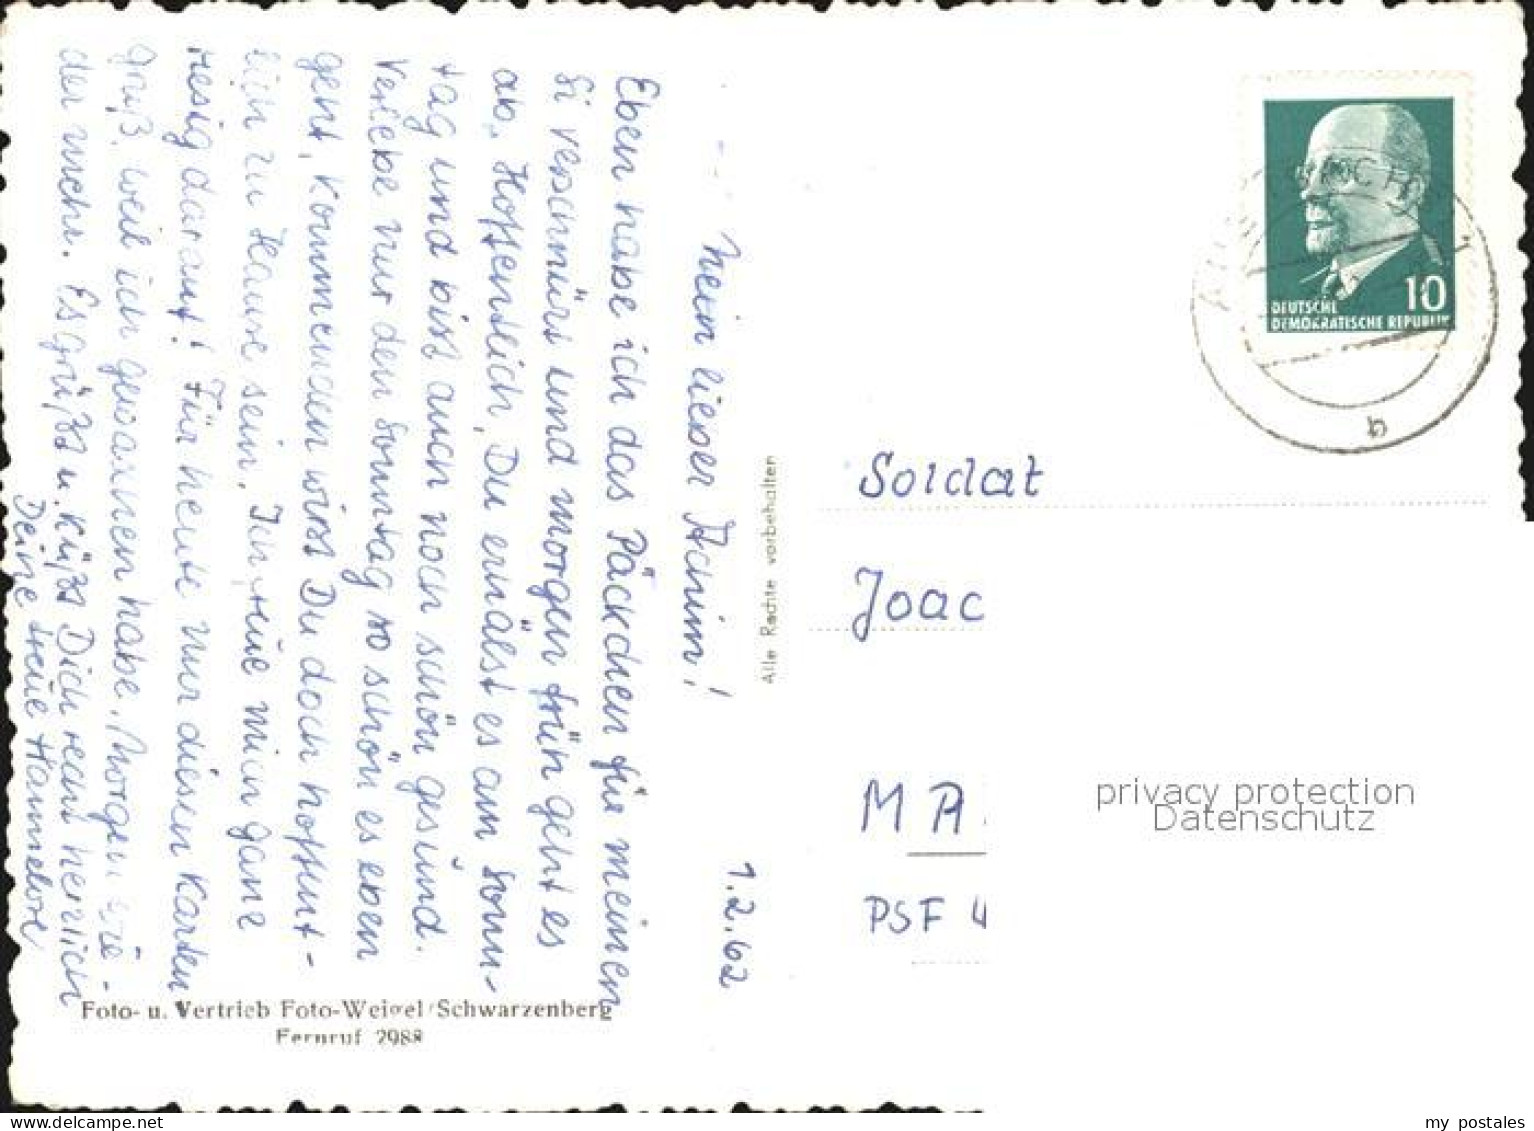 1.2.62
Mein lieber Achim!
Eben habe ich das Päckchen für meinen
verschnürt und morgen früh geht es
ab. Hoffentlich, Du erhälst es am Sonn-
tag und bist auch noch schön gesund.
Verlebe nur den Sonntag so schön es eben
geht, kommenden wirst Du doch hoffent-
lich zu Hause sein. Ich freue mich ganz
riesig darauf! Für heute nur diesen Karten
gruß, weil ich gewaschen habe. Morgen wie-
der mehr. Es grüßt u. küßt Dich recht herzlich
Deine treue Hannelore
Foto- u. Vertrieb Foto-Weigel/Schwarzenberg
Fernruf 2988
Alle Rechte vorbehalten
10
DEUTSCHE
DEMOKRATISCHE REPUBLIK
b
Soldat
Joac
MA
PSF 4
privacy protection
Datenschutz
my postales